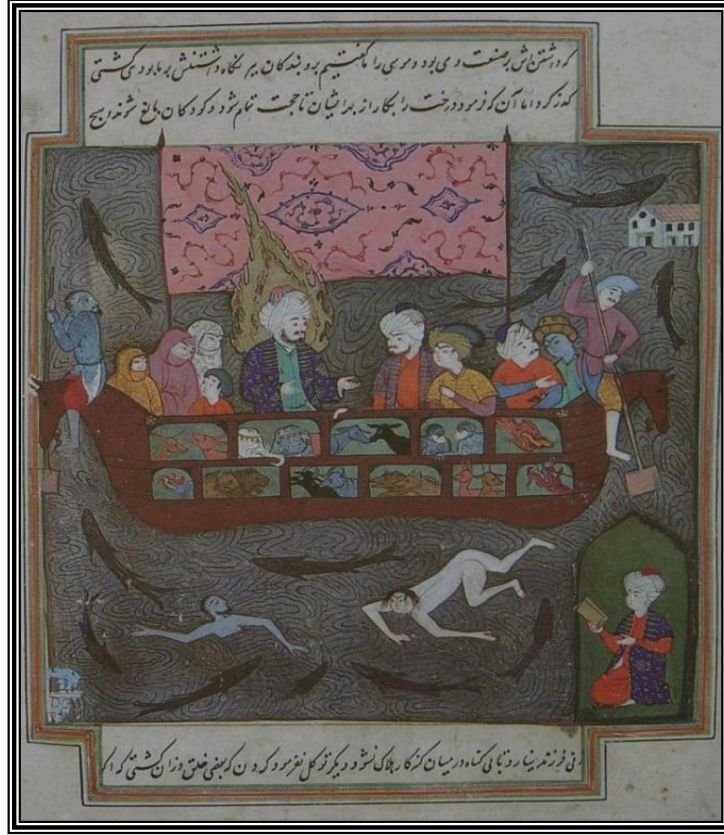 کرد داشتن اش بر صنعت وی بود و موسی را گفتیم بر و بندگان بیر نگاه داشتنش بر ما بود کشتی
کذر کرد اما آن که فرمود درخت را بکار از بهر ایشان تا حجت تمام شود و کودکان بالغ شوند هیچ
زنی فرزند نیارد تا بی گناه در میان گنه کار هلاک نشود و دیگر توکل نفرمود کردن که بعضی خلق در آن کشتی که اگر